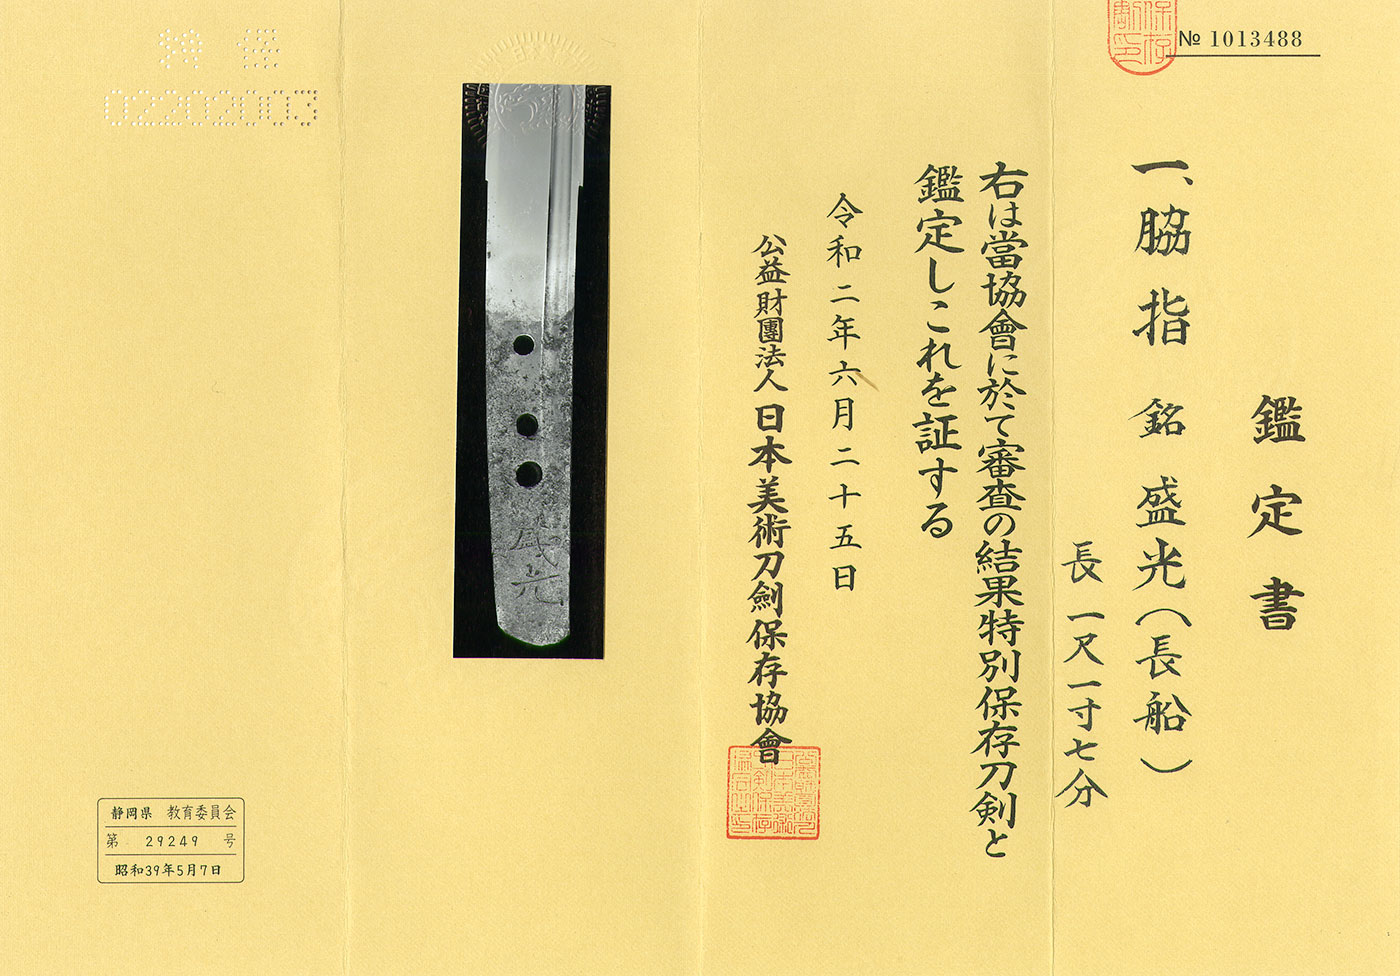 № 1013488
鑑定書
一、脇指 銘 盛光(長船)
長 一尺一寸七分
右は當協會に於て審査の結果特別保存刀剣と
鑑定しこれを証する
令和二年六月二十五日
公益財團法人 日本美術刀劍保存協會
盛光
02202003
静岡県 教育委員会
第 29249 号
昭和39年5月7日